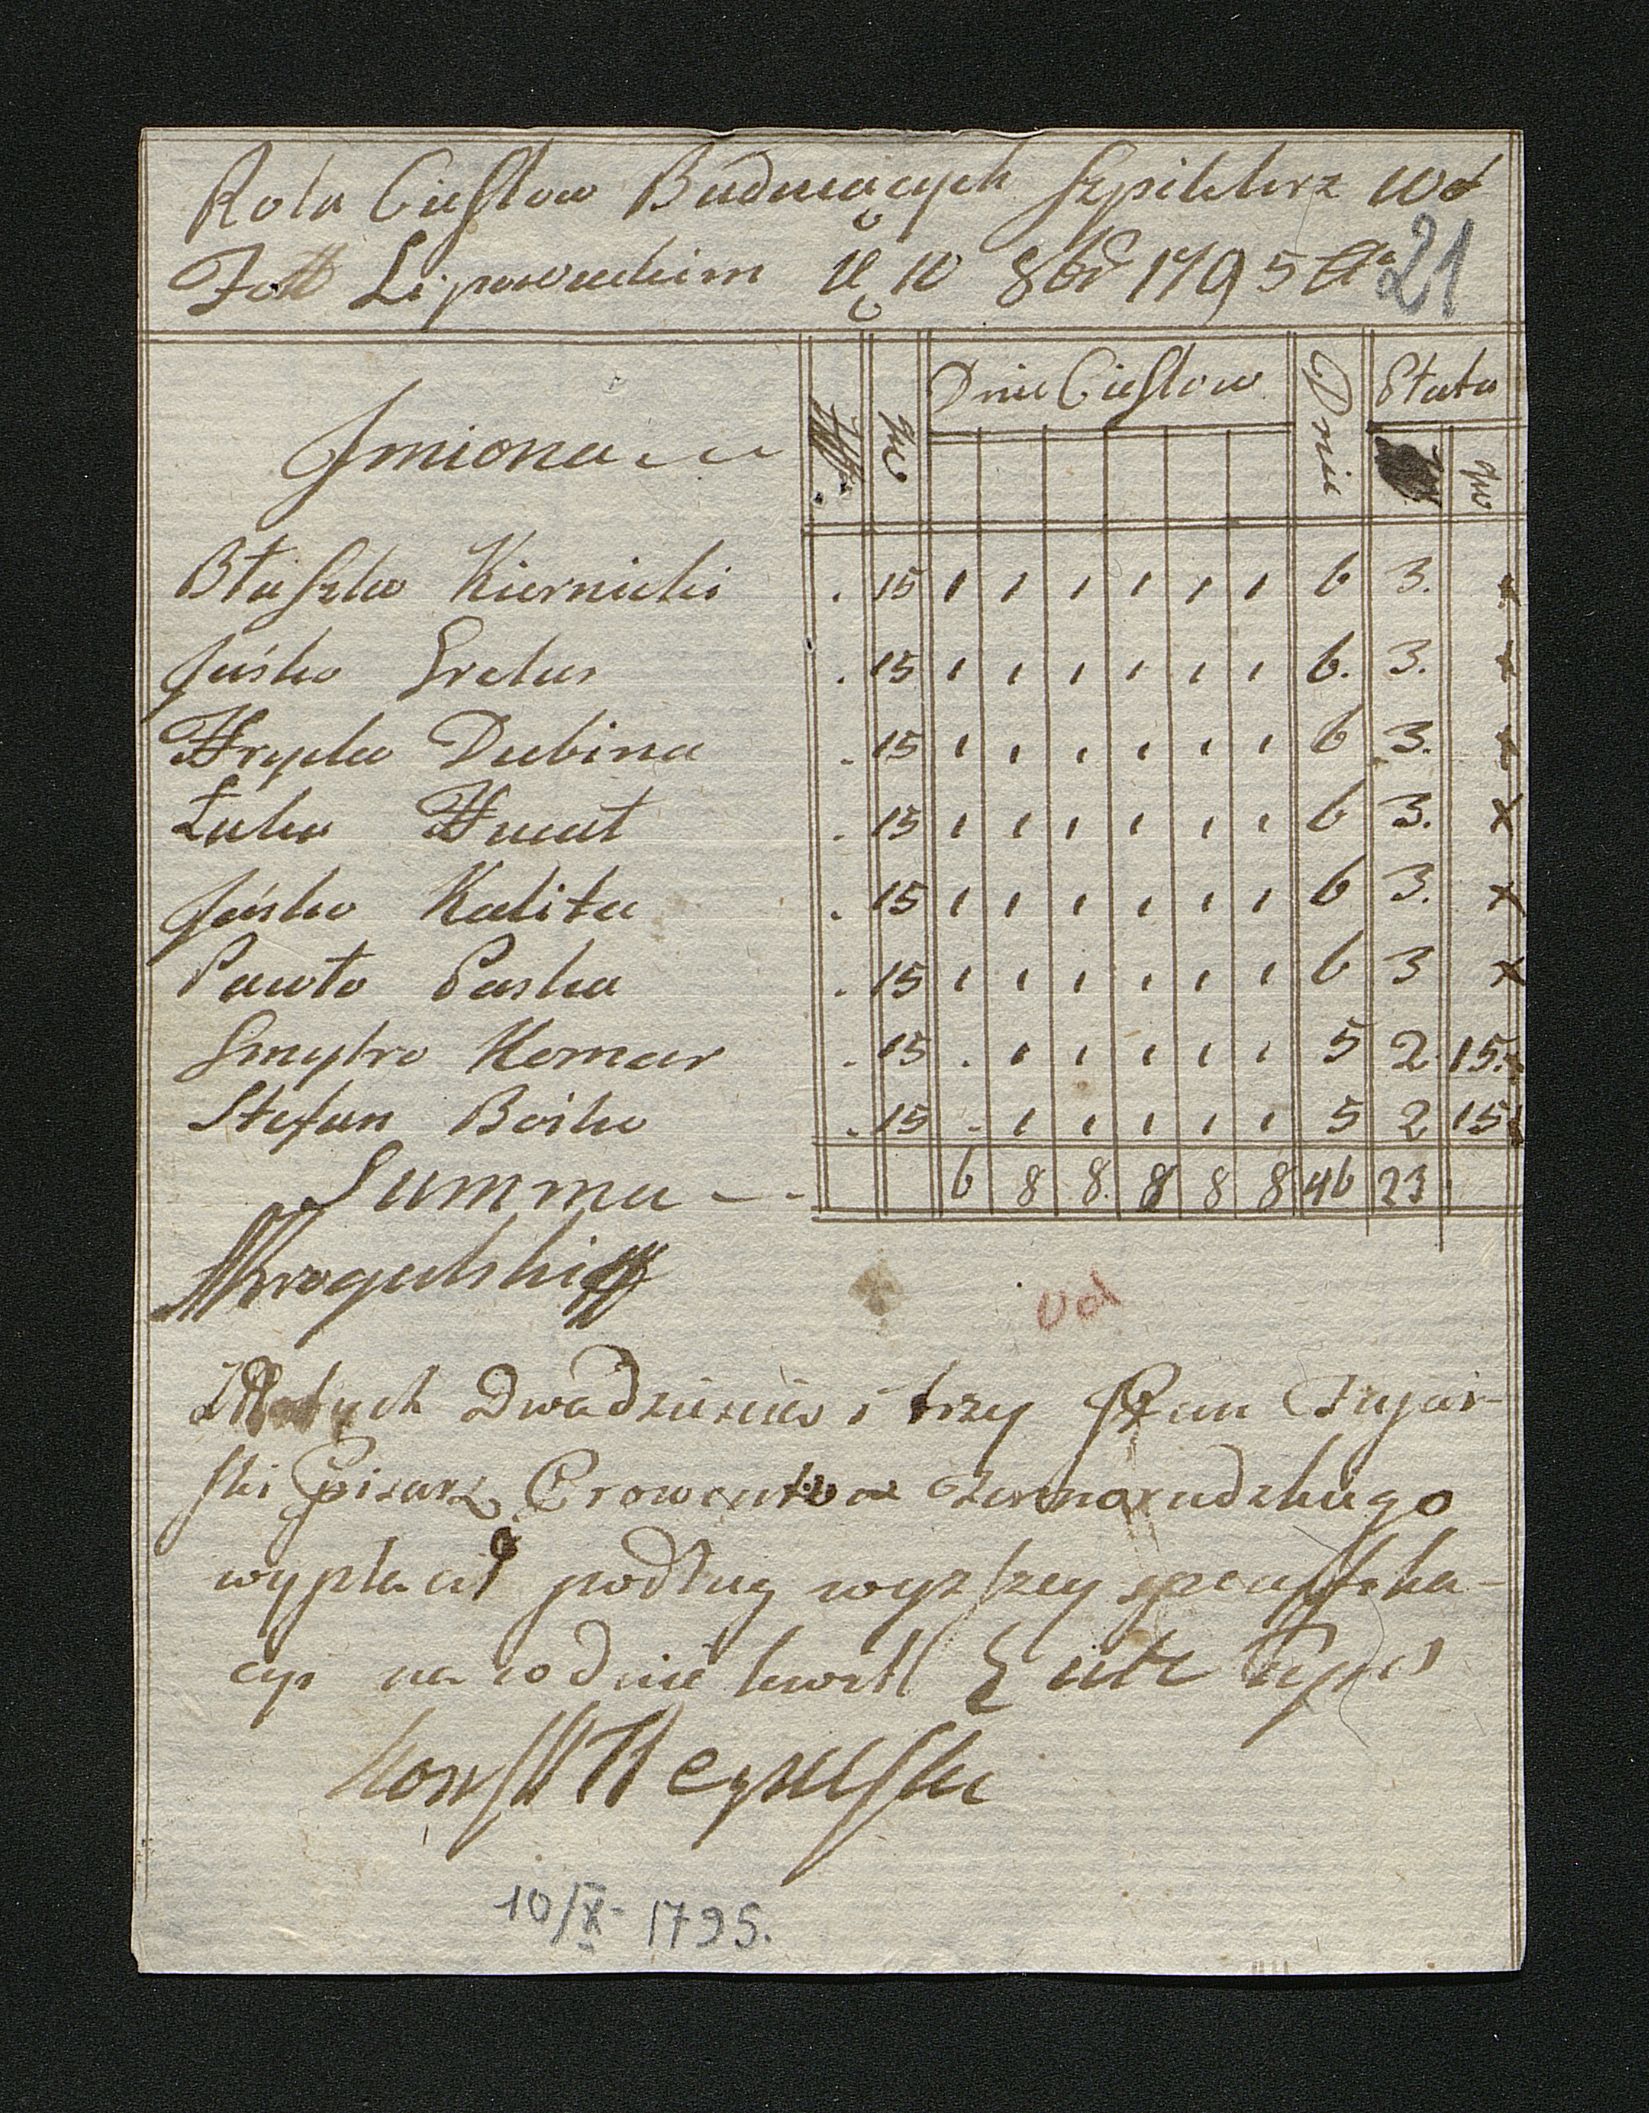 Rota Cieslow Buduiących Szpiklerz wd
Fott Lipoweckim d 10 8br 1795 Ao 21
Imiona gr Dnie Cieslow Dnie Płata gr
Błaszko Kiernicki . 15 1 1 1 1 1 1 6 3. x
Jaśko Gretus . 15 1 1 1 1 1 1 6. 3. x
Hryćko Dubina . 15 1 1 1 1 1 1 6 3. x
Łuka Hnat . 15 1 1 1 1 1 1 6 3. x
Jaśko Kalita . 15 1 1 1 1 1 1 6 3. x
Pawło Paska . 15 1 1 1 1 1 1 6 3 x
Dmytro Komar . 15 . 1 1 1 1 1 5 2 15. x
Stefan Boiko . 15 . 1 1 1 1 1 5 2 15 x
Summa 6 8 8. 8 8 8 46 23
Złotych Dwadziescia i trzy Pan
ski pisarz Prowentowy
wypłaci podług wyzszey specyfika-
cyi na co dnie kwitt
10/X - 1795.